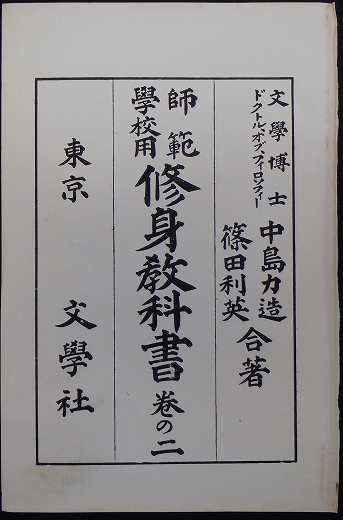 文學博士
ドクトル、オブ、フィロソフィー
中島力造
篠田利英
合著
師範
學校用
修身教科書 巻の二
東京 文學社